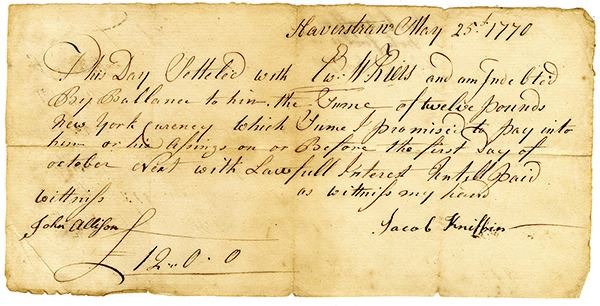 Haverstraw May 25th 1770
This Day Settelid with Ed. W Kiers and am Indebted
By Ballance to him the Sume of twelve pounds
New York Curency which Sume I promised to pay into
him or his Assings on or Before the first Day of
october Next with Lawfull Interest Untill Paid
as wittniss my hand
wittniss
John Allison
Jacob Kniffin
£ 12 .. 0 . 0